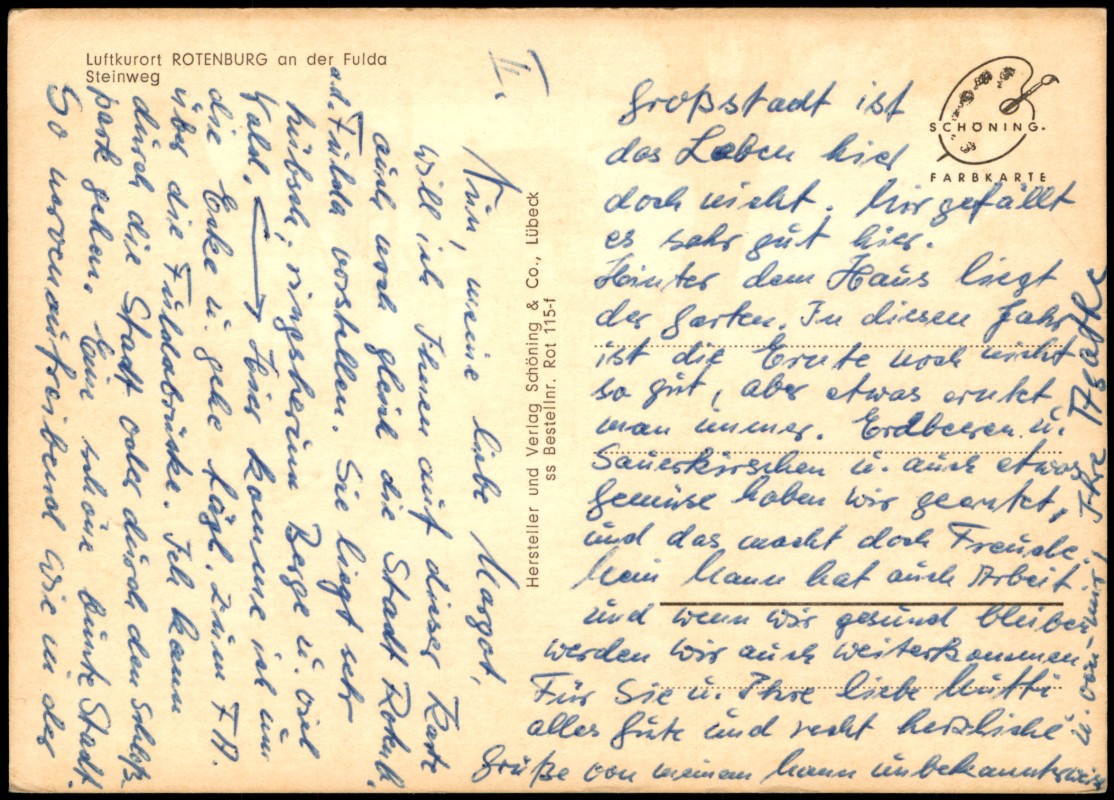 Luftkurort ROTENBURG an der Fulda
Steinweg
SCHÖNING.
FARBKARTE
Hersteller und Verlag Schöning & Co., Lübeck
ss Bestellnr. Rot 115-f
II.
Nun, meine liebe Margot,
will ich Ihnen auf dieser Karte
auch noch gleich die Stadt Rotenb.
a.d. Fulda vorstellen. Sie liegt sehr
hübsch, ringsherum Berge u. viel
Wald. ⟷ Hier komme ich um
die Ecke u. gehe tägl. zum FA.
über die Fuldabrücke. Ich kann
durch die Stadt oder durch den Schloß-
park gehen. Eine schöne bunte Stadt.
So nervenaufreibend wie in der
Großstadt ist
das Leben hier
doch nicht. Mir gefällt
es sehr gut hier.
Hinter dem Haus liegt
der Garten. In diesem Jahr
ist die Ernte noch nicht
so gut, aber etwas erntet
man immer. Erdbeeren u.
Sauerkirschen u. auch etwas
Gemüse haben wir geerntet,
und das macht doch Freude.
Mein Mann hat auch Arbeit
und wenn wir gesund bleiben
werden wir auch weiterkommen.
Für Sie u. Ihre liebe Mutti
alles Gute und recht herzliche
Grüße von meinem Mann unbekannterweise
u. von mir, Ihre Agathe